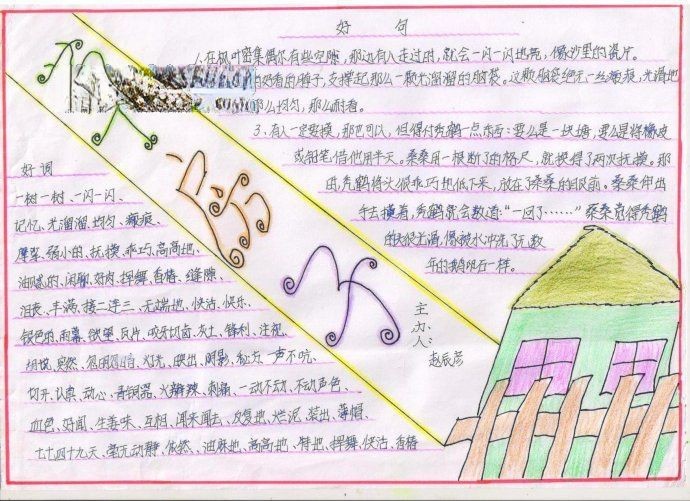 好 句
1.在枫叶密集偶尔有些空隙，那边有人走过时，就会一闪一闪地亮，像沙里的瓷片。
的脖子，支撑起那么一颗光溜溜的脑袋。这颗脑袋绝无一丝瘢痕，光滑地
那么均匀，那么耐看。
3、有人一定要摸，那也可以，但得付秃鹤一点东西：要么是一块糖，要么是将橡皮
或铅笔借他用半天。桑桑用一根断了的格尺，就换得了两次抚摸。那
时，秃鹤将头很乖巧地低下来，放在了桑桑的眼前。桑桑伸出
手去摸着，秃鹤就会数道："一回了……"桑桑觉得秃鹤
的头很光滑，像被水冲洗了无数
年的鹅卵石一样。
草房子
主办人：
赵辰彦
好词
一树一树、一闪一闪、
记忆、光溜溜、均匀、瘢痕、
摩挲、弱小的、抚摸、乖巧、高高地、
油腻的、闲聊、好肉、挥舞、香椿、缝隙、
沮丧、丰满、接二连三、无端地、快活、快乐、
银色的、雨幕、欲望、瓦片、咬牙切齿、灰土、锋利、注视、
突然、忽明忽暗、灯光、映出、阴影、秘方、一声不吭、
切开、认真、动心、青铜器、火辣辣、刺痛、一动不动、不动声色、
血色、好闻、生姜味、互相、闻来闻去、反复地、烂泥、装出、薄帽、
七七四十九天、毫无动静、依然、油麻地、高高地、特地、挥舞、快活、香椿